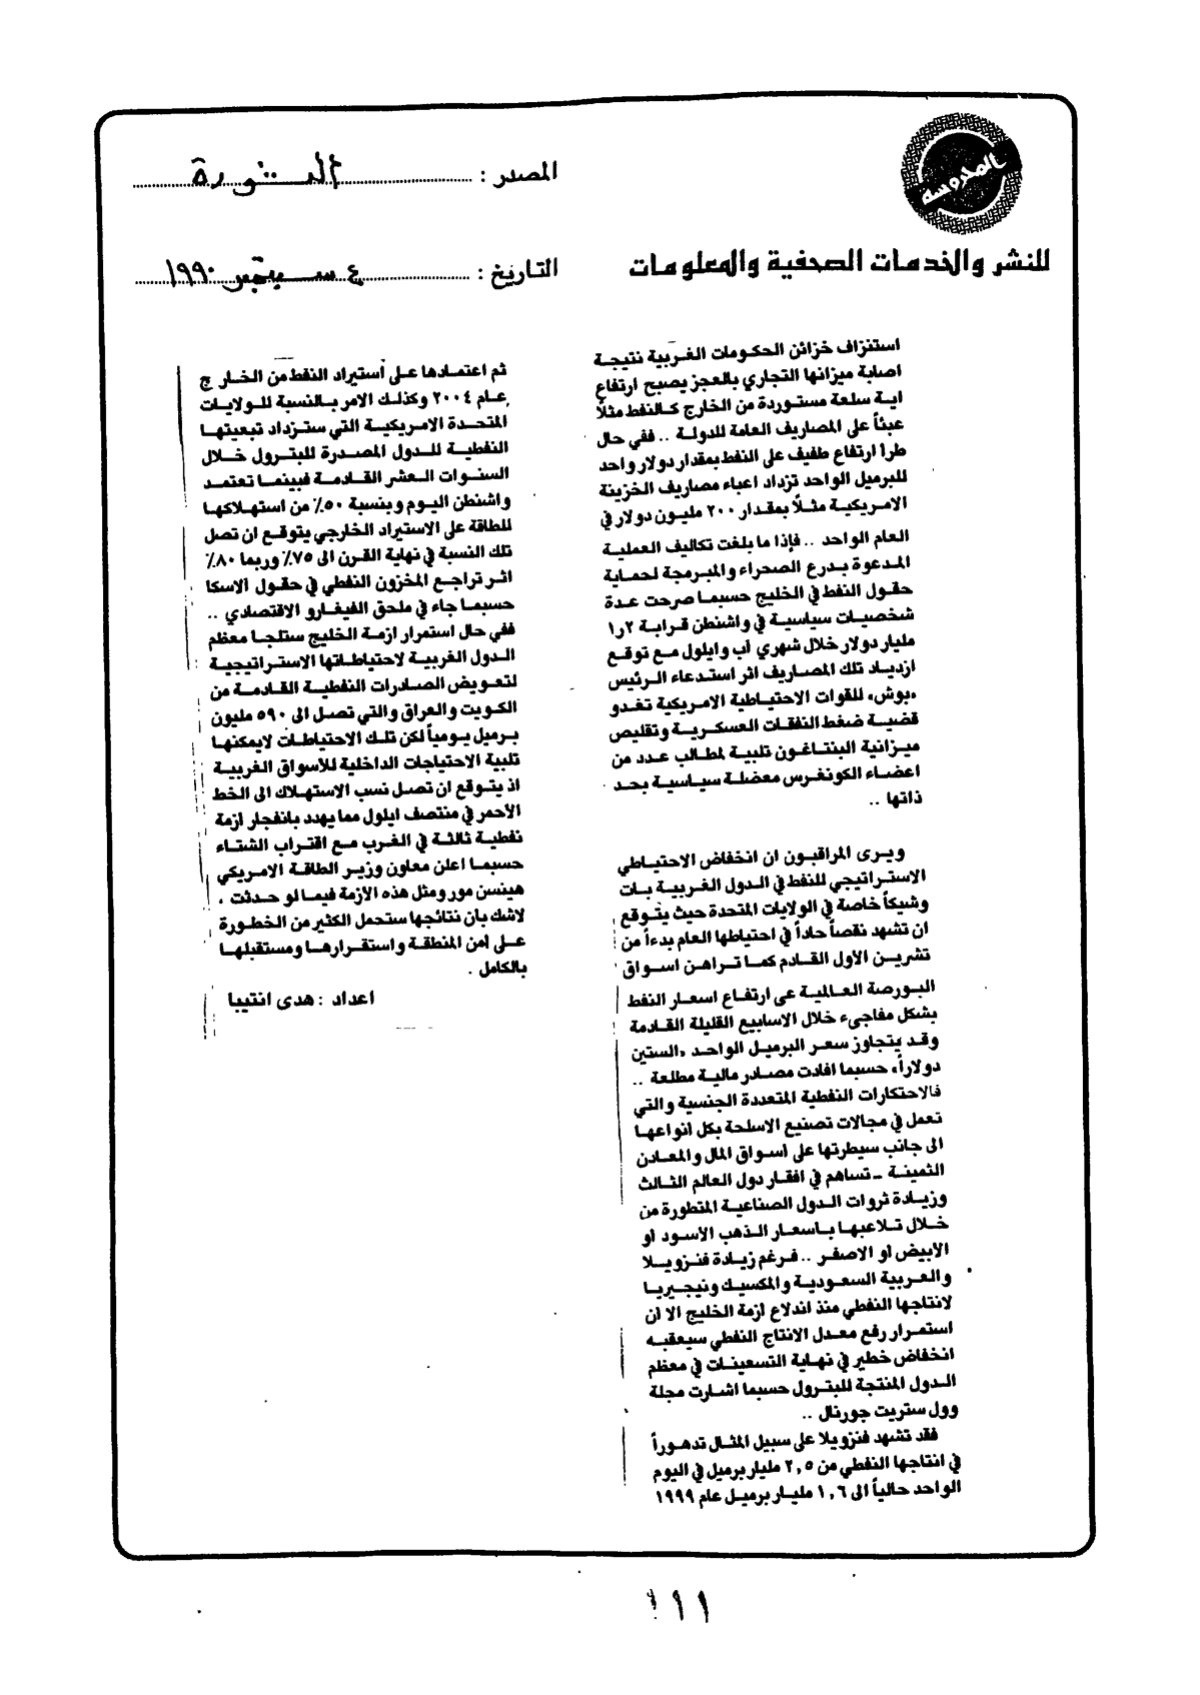 المحروسة
للنشر والخدمات الصحفية والمعلومات
المصدر : الثورة
التاريخ : ٤ سبتمبر ١٩٩٠
استنزاف خزائن الحكومات الغربية نتيجة
اصابة ميزانها التجاري بالعجز يصبح ارتفاع
اية سلعة مستوردة من الخارج كالنفط مثلاً
عبئاً على المصاريف العامة للدولة .. ففي حال
طرأ ارتفاع طفيف على النفط بمقدار دولار واحد
للبرميل الواحد تزداد اعباء مصاريف الخزينة
الامريكية مثلاً بمقدار ٢٠٠ مليون دولار في
العام الواحد .. فإذا ما بلغت تكاليف العملية
المدعوة بدرع الصحراء والمبرمجة لحماية
حقول النفط في الخليج حسبما صرحت عدة
شخصيات سياسية في واشنطن قرابة ١٫٢
مليار دولار خلال شهري آب وايلول مع توقع
ازدياد تلك المصاريف اثر استدعاء الرئيس
«بوش» للقوات الاحتياطية الامريكية تغدو
قضية ضغط النفقات العسكرية وتقليص
ميزانية البنتاغون تلبية لمطالب عدد من
اعضاء الكونغرس معضلة سياسية بحد
ذاتها ..
ويرى المراقبون ان انخفاض الاحتياطي
الاستراتيجي للنفط في الدول الغربية بات
وشيكاً خاصة في الولايات المتحدة حيث يتوقع
ان تشهد نقصاً حاداً في احتياطها العام بدءاً من
تشرين الاول القادم كما تراهن اسواق
البورصة العالمية عى ارتفاع اسعار النفط
بشكل مفاجىء خلال الاسابيع القليلة القادمة
وقد يتجاوز سعر البرميل الواحد «الستين
دولاراً» حسبما افادت مصادر مالية مطلعة ..
فالاحتكارات النفطية المتعددة الجنسية والتي
تعمل في مجالات تصنيع الاسلحة بكل انواعها
الى جانب سيطرتها على اسواق المال والمعادن
الثمينة ـ تساهم في افقار دول العالم الثالث
وزيادة ثروات الدول الصناعية المتطورة من
خلال تلاعبها باسعار الذهب الاسود او
الابيض او الاصفر .. فرغم زيادة فنزويلا
والعربية السعودية والمكسيك ونيجيريا
لانتاجها النفطي منذ اندلاع ازمة الخليج الا ان
استمرار رفع معدل الانتاج النفطي سيعقبه
انخفاض خطير في نهاية التسعينات في معظم
الدول المنتجة للبترول حسبما اشارت مجلة
وول ستريت جورنال ..
فقد تشهد فنزويلا على سبيل المثال تدهوراً
في انتاجها النفطي من ٢,٥ مليار برميل في اليوم
الواحد حالياً الى ١,٦ مليار برميل عام ١٩٩٩
ثم اعتمادها على أستيراد النفط من الخارج
عام ٢٠٠٤ وكذلك الامر بالنسبة للولايات
المتحدة الامريكية التي ستزداد تبعيتها
النفطية للدول المصدرة للبترول خلال
السنوات العشر القادمة فبينما تعتمد
واشنطن اليوم وبنسبة ٥٠٪ من استهلاكها
للطاقة على الاستيراد الخارجي يتوقع ان تصل
تلك النسبة في نهاية القرن الى ٧٥٪ وربما ٨٠٪
اثر تراجع المخزون النفطي في حقول الاسكا
حسبما جاء في ملحق الفيغارو الاقتصادي ..
ففي حال استمرار ازمة الخليج ستلجا معظم
الدول الغربية لاحتياطاتها الاستراتيجية
لتعويض الصادرات النفطية القادمة من
الكويت والعراق والتي تصل الى ٥٩٠ مليون
برميل يومياً لكن تلك الاحتياطات لايمكنها
تلبية الاحتياجات الداخلية للأسواق الغربية
اذ يتوقع ان تصل نسب الاستهلاك الى الخط
الأحمر في منتصف ايلول مما يهدد بانفجار ازمة
نفطية ثالثة في الغرب مع اقتراب الشتاء
حسبما اعلن معاون وزير الطاقة الامريكي
هينسن مور ومثل هذه الازمة فيما لو حدثت ،
لاشك بان نتائجها ستحمل الكثير من الخطورة
على أمن المنطقة واستقرارها ومستقبلها
بالكامل .
اعداد : هدى انتيبا